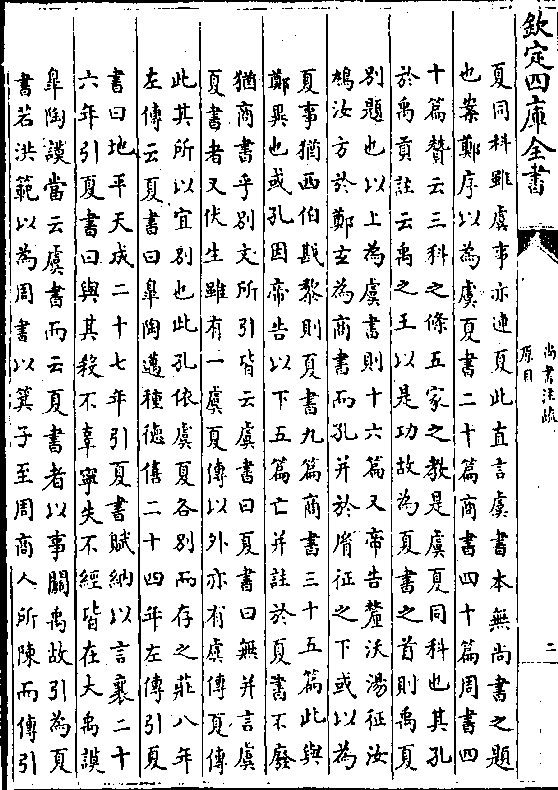 欽定四庫全書
尚書注疏
原目
二
夏同科雖虞事亦連夏此直言虞書本無尚書之題
也案鄭序以為虞夏書二十篇商書四十篇周書四
十篇贊云三科之條五家之教是虞夏同科也其孔
於禹貢註云禹之王以是功故為夏書之首則禹夏
別題也以上為虞書則十六篇又帝告釐沃湯征汝
鳩汝方於鄭玄為商書而孔并於胤征之下或以為
夏事猶西伯戡黎則夏書九篇商書三十五篇此與
鄭異也或孔因帝告以下五篇亡并註於夏書不廢
猶商書乎別文所引皆云虞書曰夏書曰無并言虞
夏書者又伏生雖有一虞夏傳以外亦有虞傳夏傳
此其所以宜別也此孔依虞夏各別而存之莊八年
左傳云夏書曰皐陶邁種德僖二十四年左傳引夏
書曰地平天成二十七年引夏書賦納以言襄二十
六年引夏書曰與其殺不辜寧失不經皆在大禹謨
皐陶謨當云虞書而云夏書者以事關禹故引為夏
書若洪範以為周書以箕子至周商人所陳而傳引